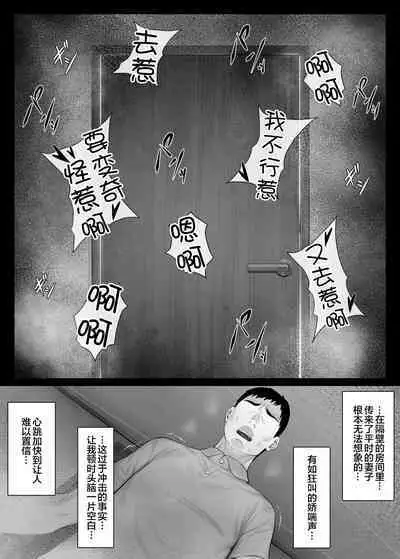 啊
啊
我不行惹
又去惹啊
去惹
嗯
啊
要变奇
怪惹啊
啊
啊
…在隔壁的房间里…
传来了平时的妻子
根本无法想象的…
有如狂叫的娇喘声…
…这过于冲击的事实…
让我顿时头脑一片空白…
心跳加快到让人
难以置信…